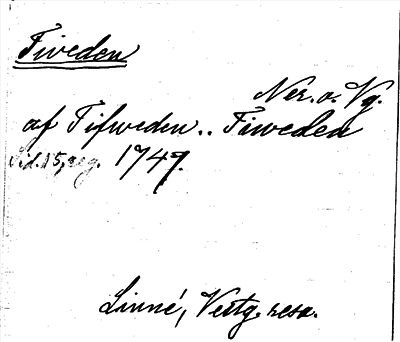 Tiveden
Ner. o. Vg.
af Tifweden.. Tiweden
Sid. 15, reg. 1747.
Linné, Vestg. resa.